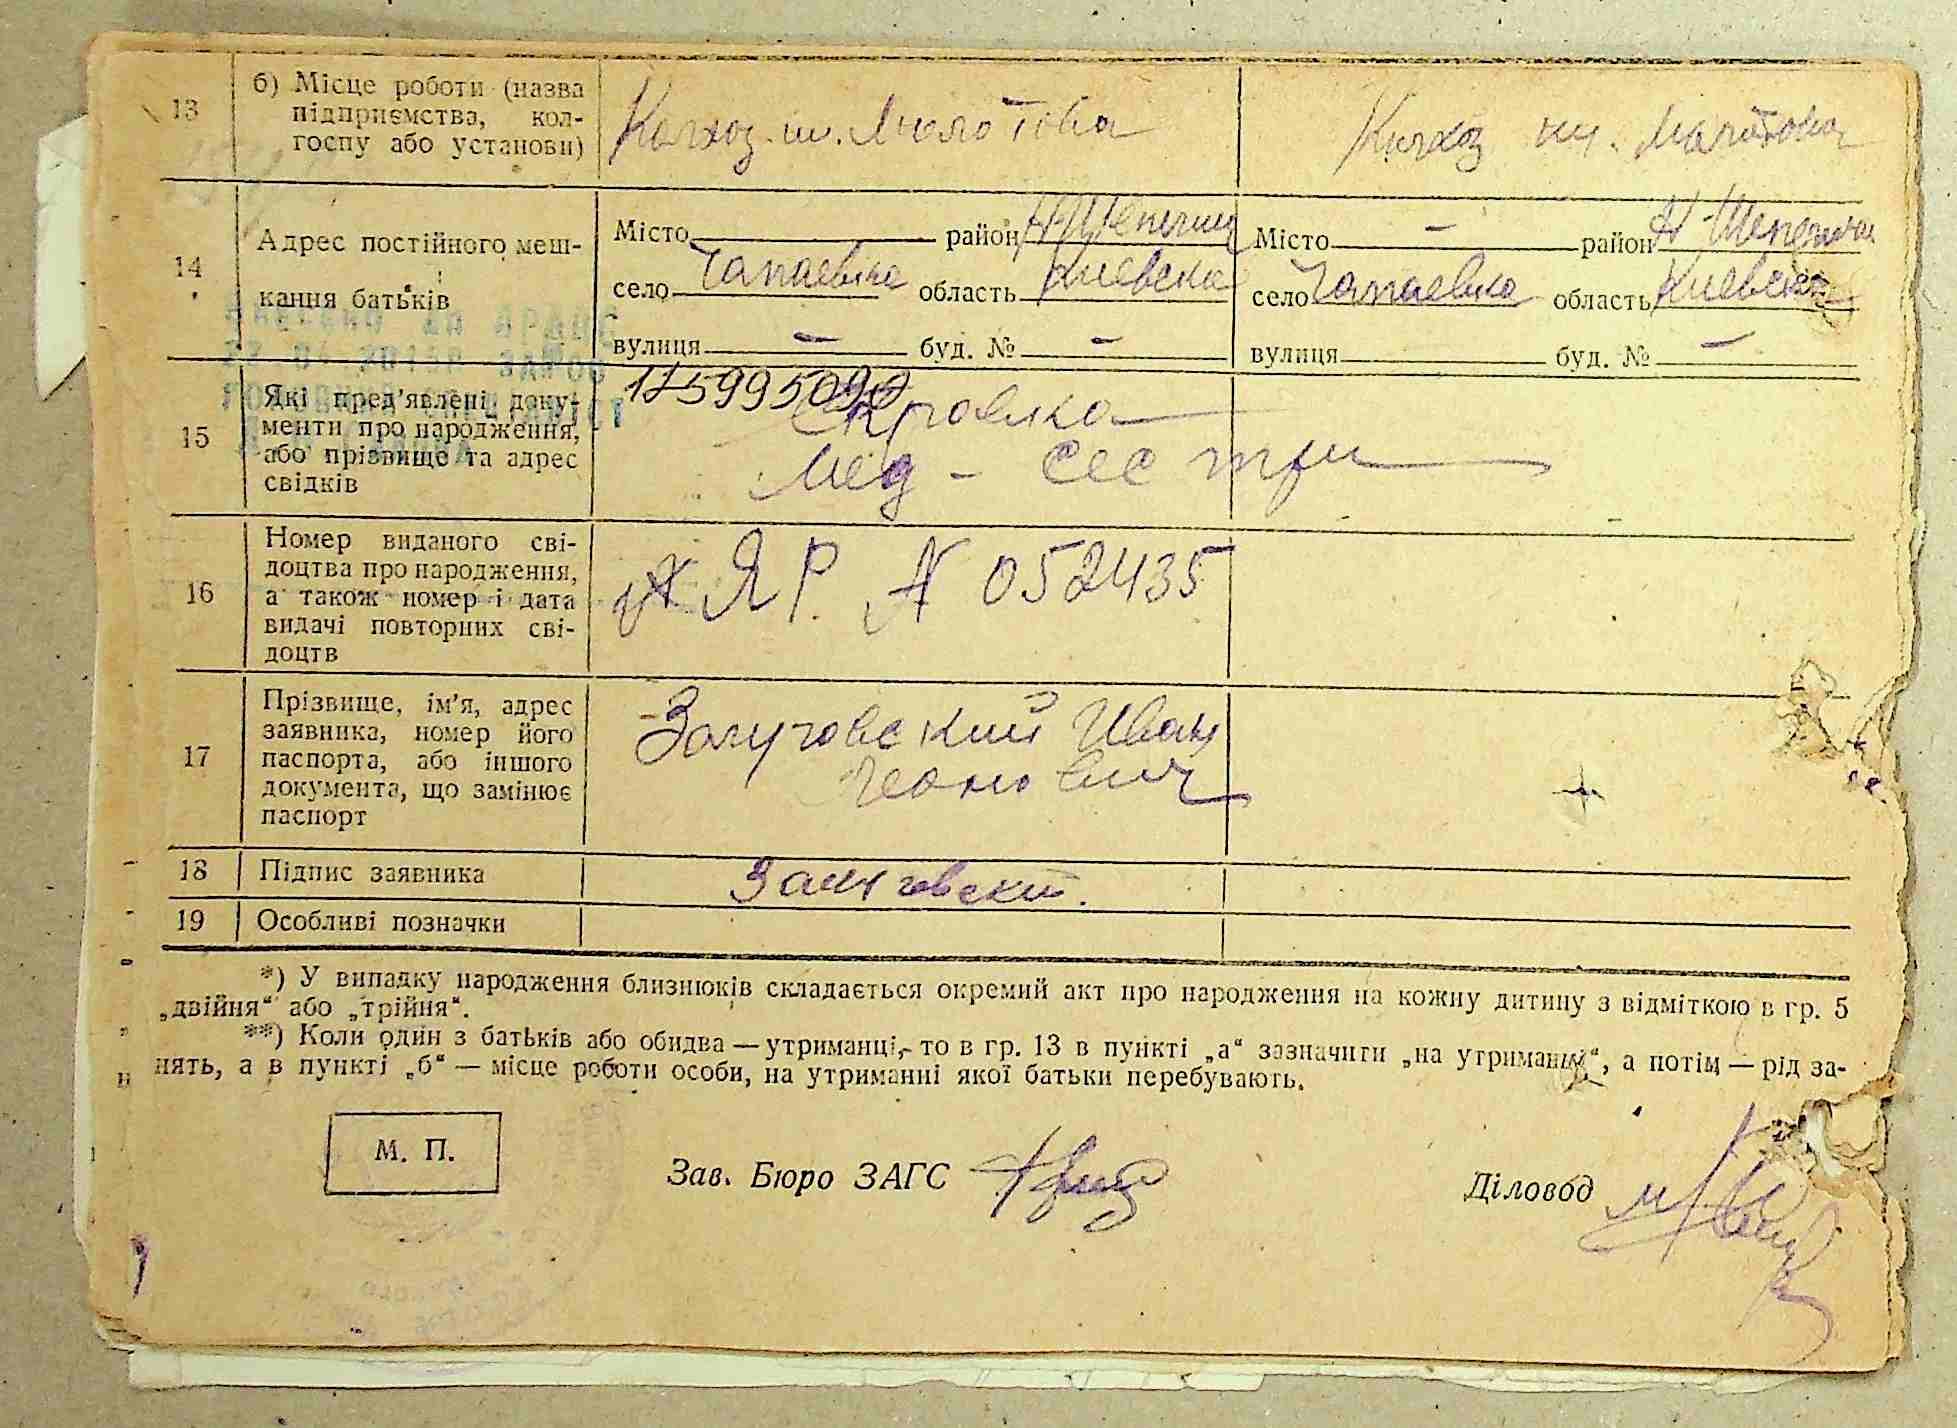 13
б) Місце роботи (назва
підприємства, кол-
госпу або установи)
Колхоз. им. Молотова
Колхоз им. Молотова
14
Адрес постійного меш-
кання батьків
Місто район Н-Шепелич
село Чапаевка область Киевска
вулиця — буд. № —
Місто — район Н-Шепелич
село Чапаевка область Киевска
вулиця буд. № —
15
Які пред'явлені доку-
менти про народження,
або прізвище та адрес
свідків
Справка
Мед - сестри
16
Номер виданого сві-
доцтва про народження,
а також номер і дата
видачі повторних сві-
доцтв
ЯР. № 052435
17
Прізвище, ім'я, адрес
заявника, номер його
паспорта, або іншого
документа, що замінює
паспорт
Иван
18
Підпис заявника
19
Особливі позначки
*) У випадку народження близнюків складається окремий акт про народження на кожну дитину з відміткою в гр. 5
„двійня“ або „трійня“.
**) Коли один з батьків або обидва — утриманці, то в гр. 13 в пункті „а“ зазначити „на утриманні“, а потім — рід за-
нять, а в пункті „б“ — місце роботи особи, на утриманні якої батьки перебувають.
М. П.
Зав. Бюро ЗАГС
Діловод